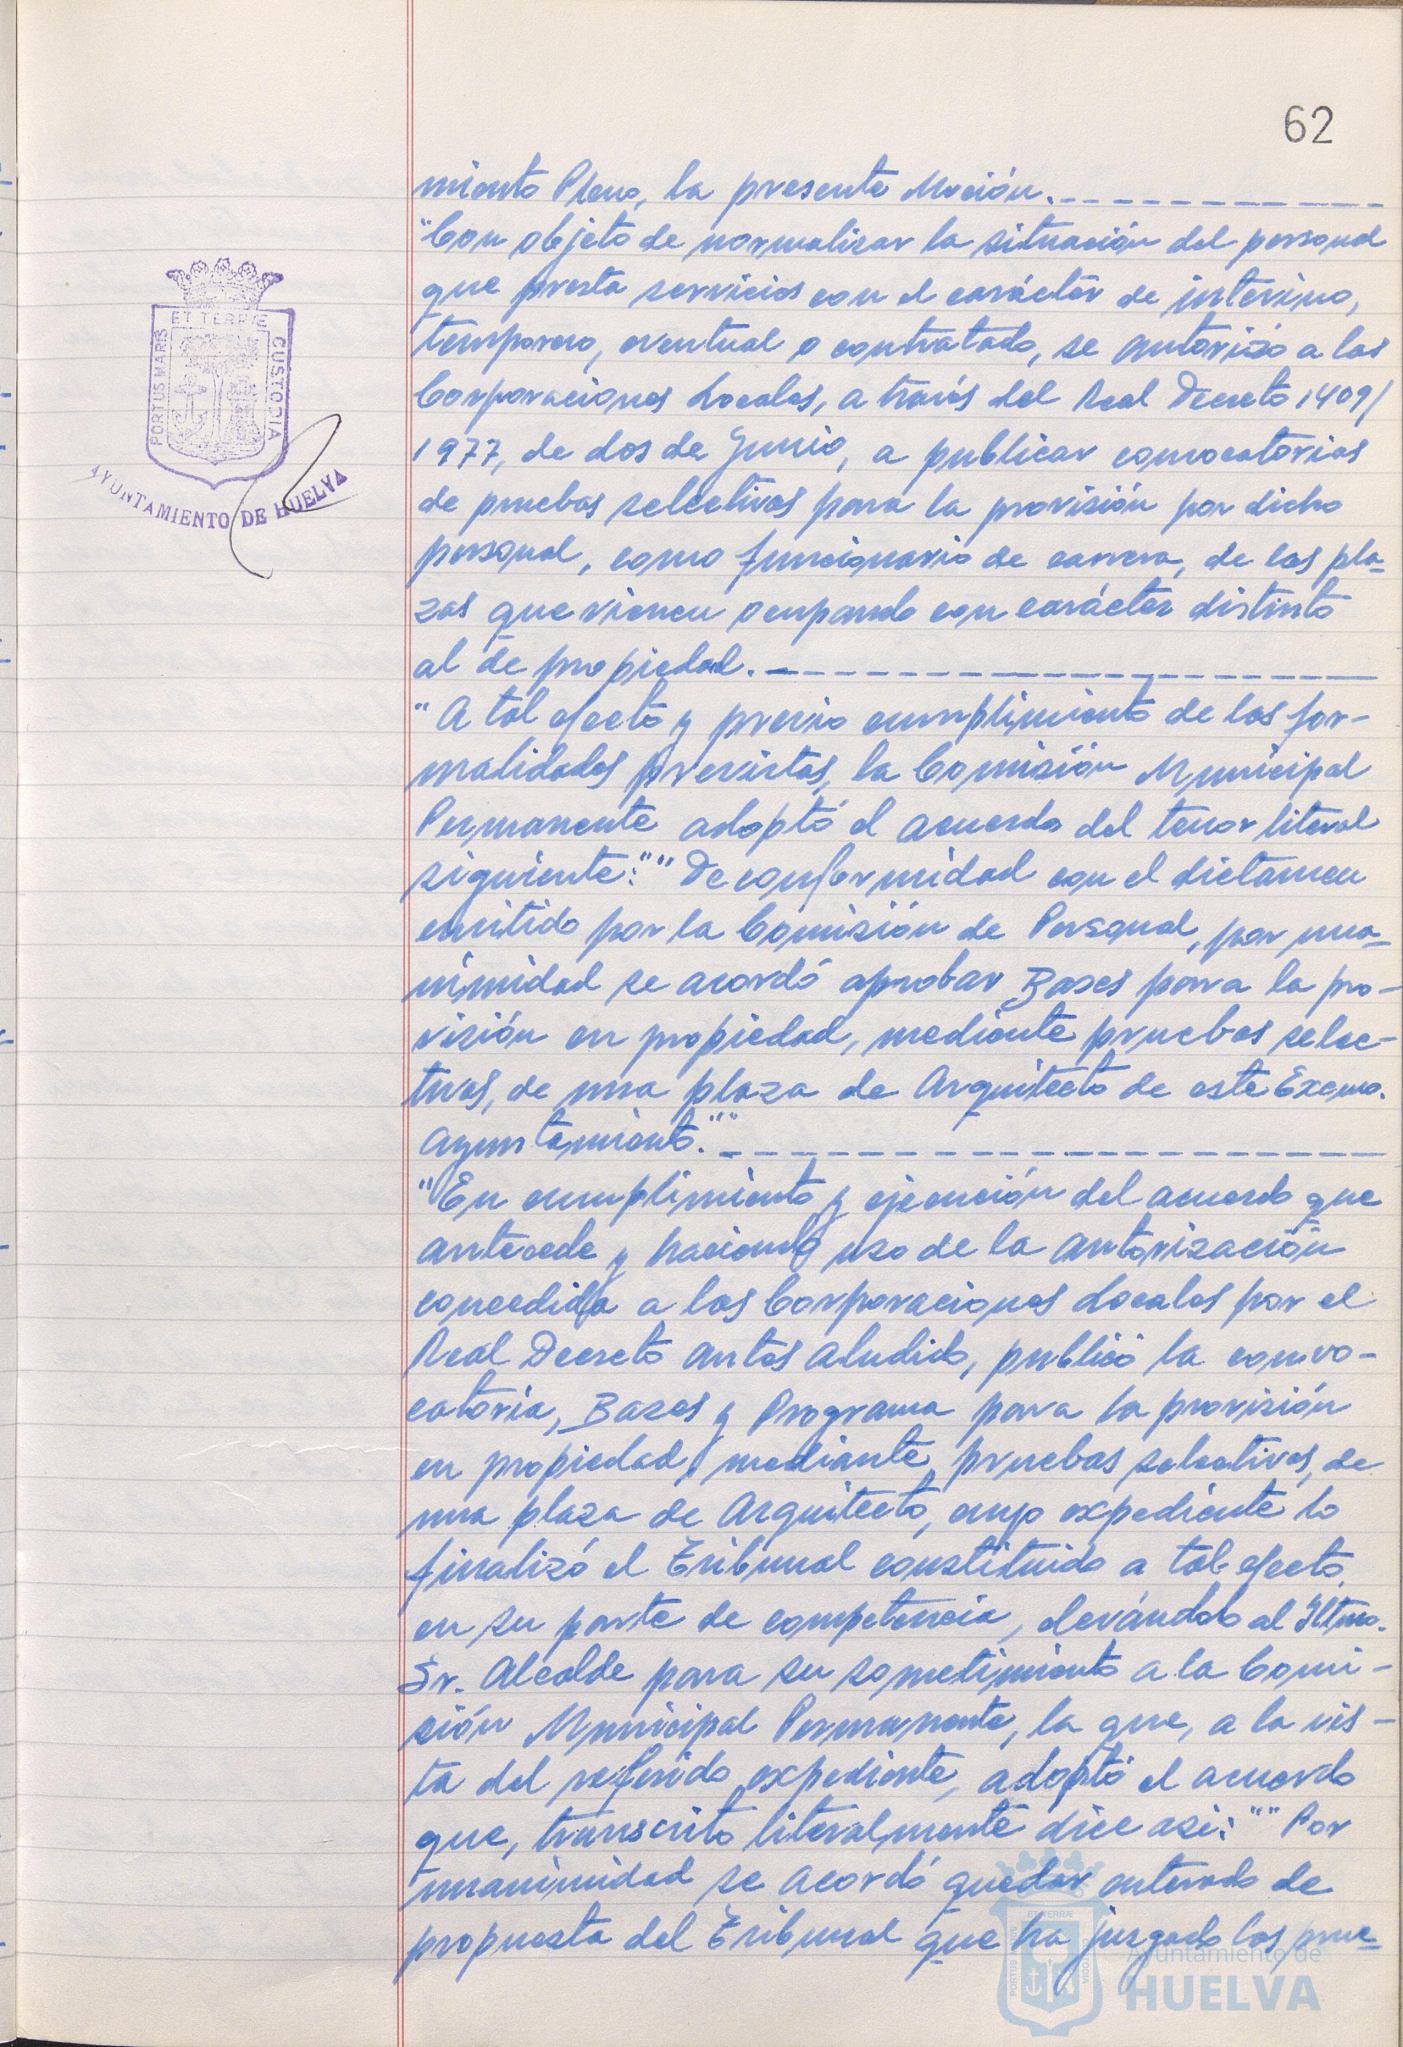 62
miento Pleno, la presente Moción.
"Con objeto de normalizar la situación del personal
que presta servicios con el carácter de interino,
temporero, eventual o contratado, se autorizó a las
Corporaciones Locales, a través del Real Decreto 1409/
1977, de dos de Junio, a publicar convocatorias
de pruebas selectivas para la provisión por dicho
personal, como funcionario de carrera, de las pla-
zas que vienen ocupando con carácter distinto
al de propiedad.
"A tal efecto y previo cumplimiento de las for-
malidades previstas, la Comisión Municipal
Permanente adoptó el acuerdo del tenor literal
siguiente:""De conformidad con el dictamen
emitido por la Comisión de Personal, por una-
nimidad se acordó aprobar Bases para la pro-
visión en propiedad, mediante pruebas selec-
tivas, de una plaza de Arquitecto de este Excmo.
Ayuntamiento.""
"En cumplimiento y ejecución del acuerdo que
antecede y haciendo uso de la autorización
concedida a las Corporaciones Locales por el
Real Decreto antes aludido, publicó la convo-
catoria, Bases y Programa para la provisión
en propiedad, mediante pruebas selectivas, de
una plaza de Arquitecto, cuyo expediente lo
finalizó el Tribunal constituido a tal efecto
en su parte de competencia, elevándolo al Iltmo.
Sr. Alcalde para su sometimiento a la Comi-
sión Municipal Permanente, la que, a la vis-
ta del referido expediente, adoptó el acuerdo
que, transcrito literalmente dice así:"" Por
unanimidad se acordó quedar enterado de
propuesta del Tribunal que ha juzgado las prue-
ET TERRÆ
PORTUS MARIS
CUSTODIA
AYUNTAMIENTO DE HUELVA
Ayuntamiento de
HUELVA